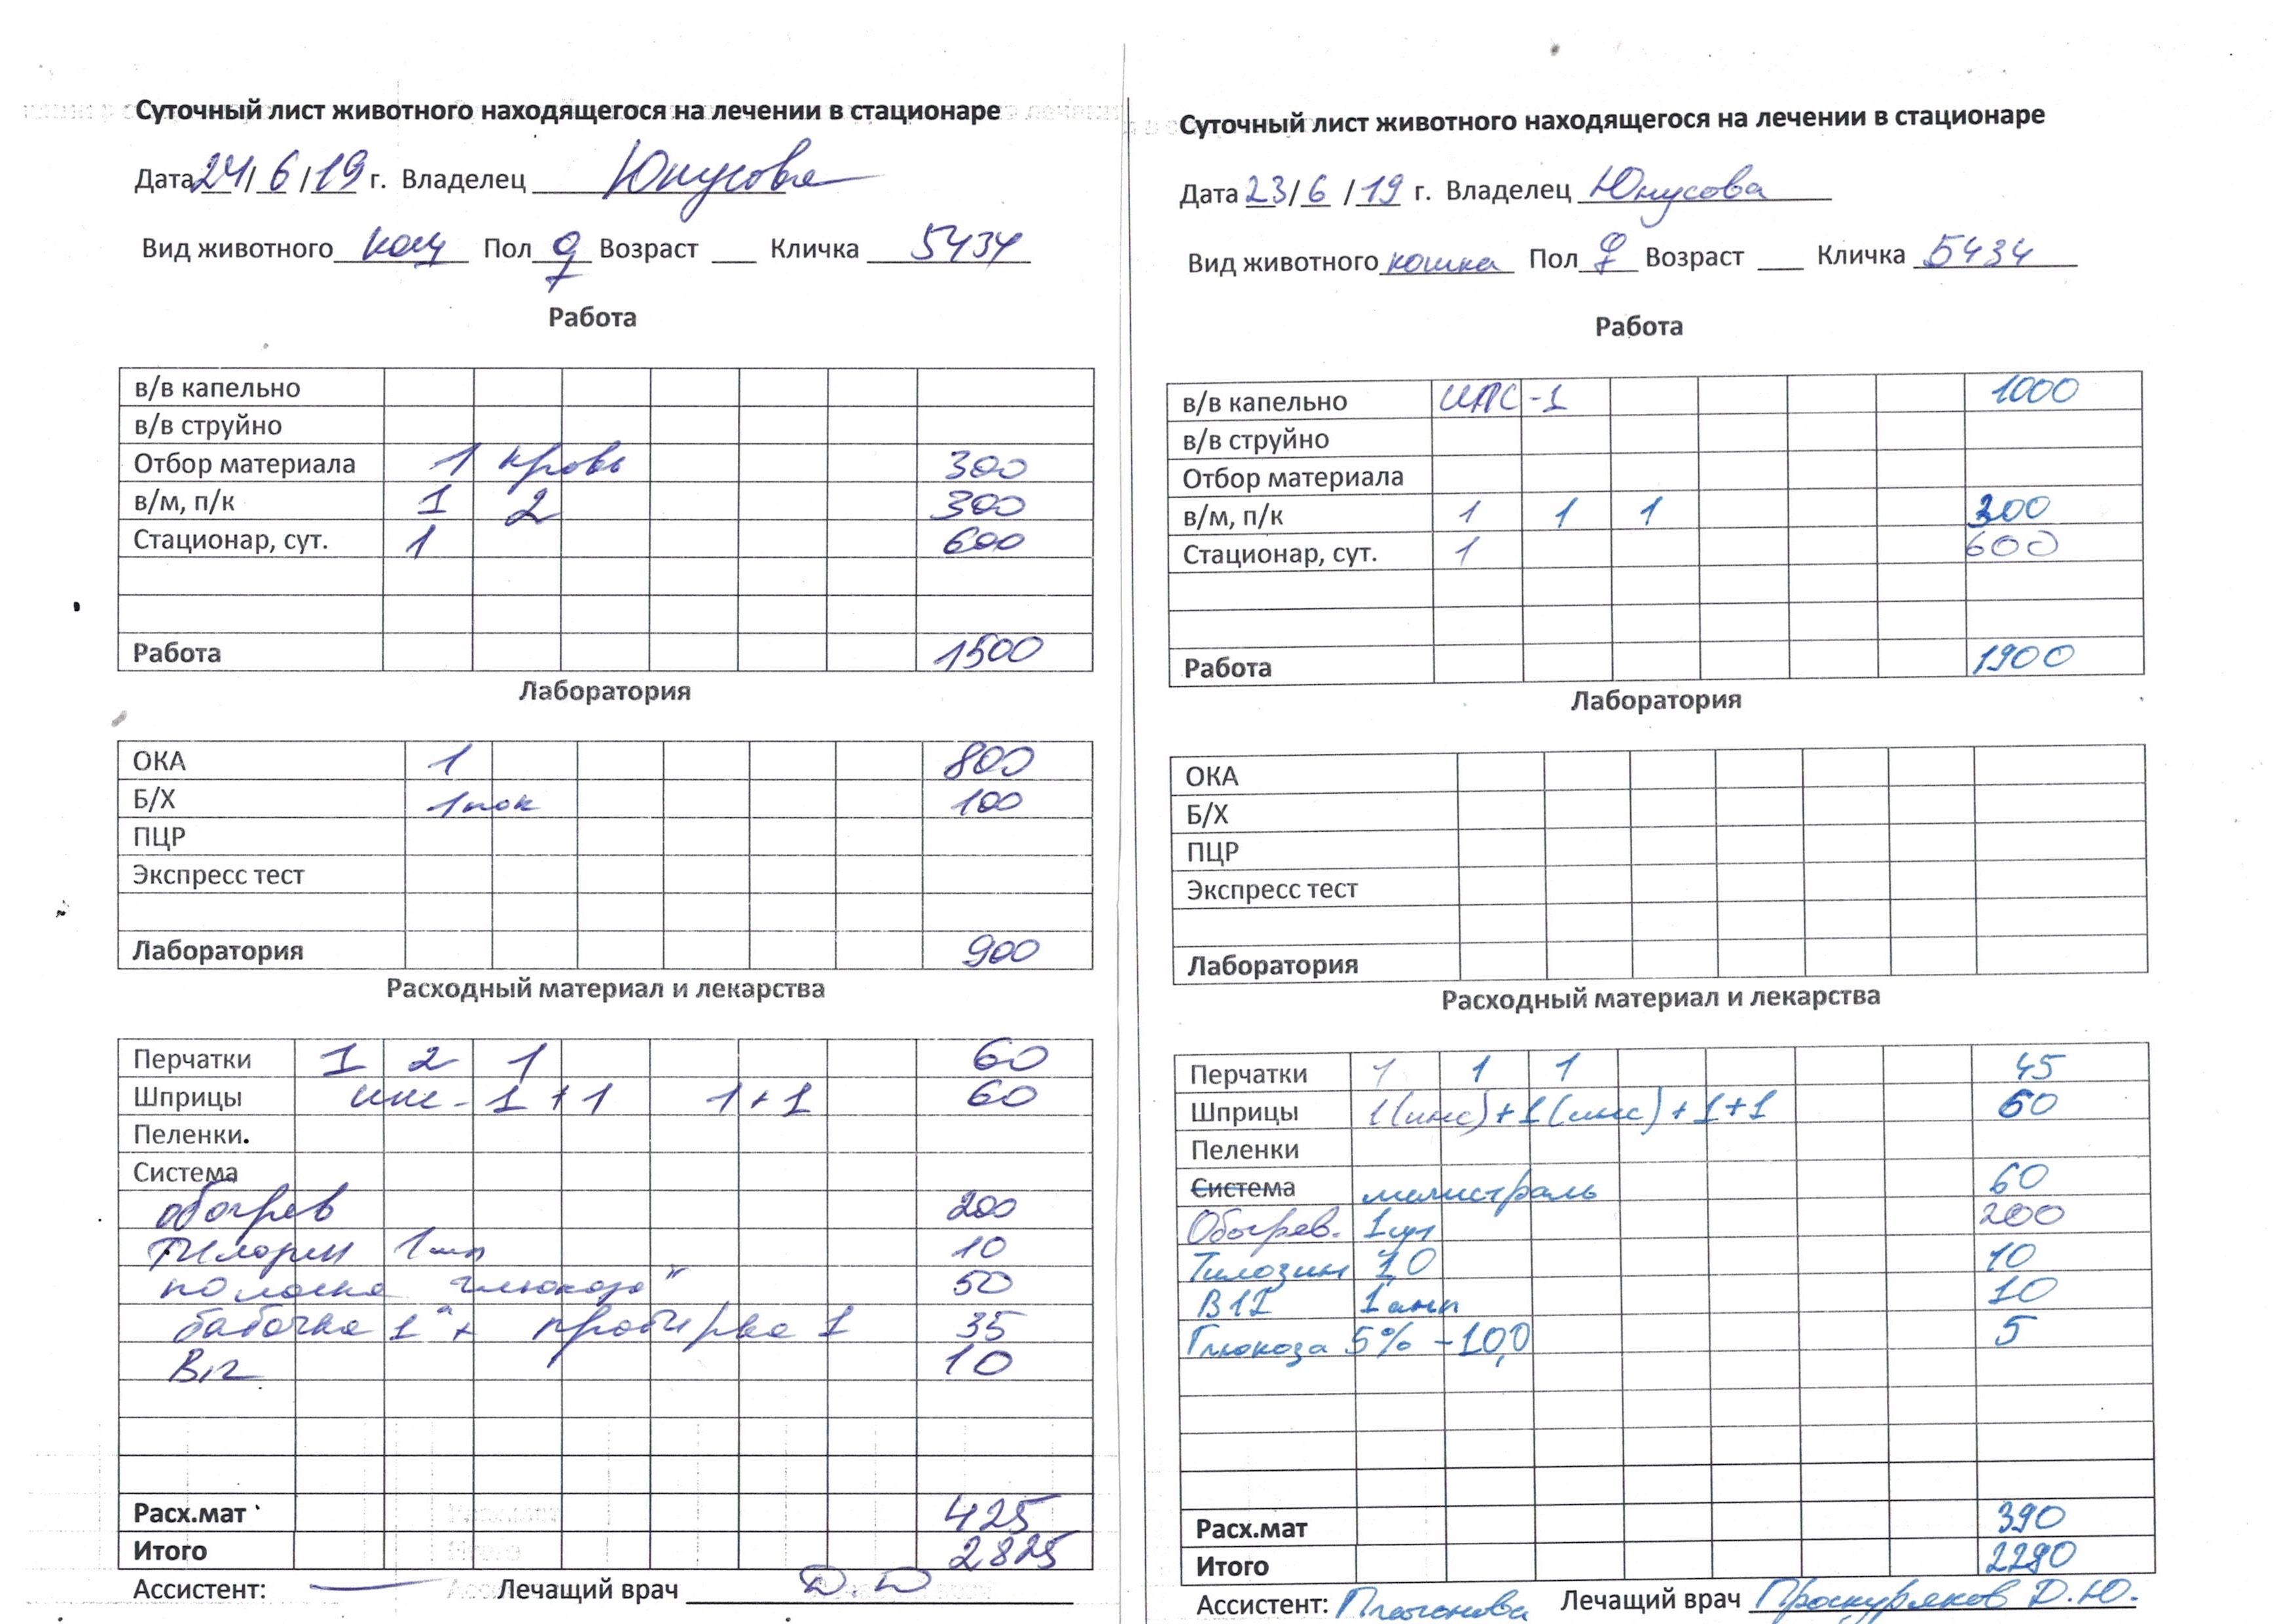 Суточный лист животного находящегося на лечении в стационаре
Дата 24/ 6 /19 г. Владелец Юнусова
Вид животного кош Пол ♀ Возраст ___ Кличка 5434
Работа
в/в капельно
в/в струйно
Отбор материала 1 кровь 300
в/м, п/к 1 2 300
Стационар, сут. 1 600
Работа 1500
Лаборатория
ОКА 1 800
Б/Х 1 пок 100
ПЦР
Экспресс тест
Лаборатория 900
Расходный материал и лекарства
Перчатки 1 2 1 60
Шприцы инс - 1 + 1 1 + 1 60
Пеленки.
Система
обогрев 200
Тилозин 1 мл 10
полоска "глюкоза" 50
бабочка 1 + пробирка 1 35
В12 10
Расх.мат 425
Итого 2825
Ассистент: — Лечащий врач
Суточный лист животного находящегося на лечении в стационаре
Дата 23/ 6 /19 г. Владелец Юнусова
Вид животного кошка Пол ♀ Возраст ___ Кличка 5434
Работа
в/в капельно ИПС -1 1000
в/в струйно
Отбор материала
в/м, п/к 1 1 1 300
Стационар, сут. 1 600
Работа 1900
Лаборатория
ОКА
Б/Х
ПЦР
Экспресс тест
Лаборатория
Расходный материал и лекарства
Перчатки 1 1 1 45
Шприцы 1(инс) + 1(инс) + 1 + 1 60
Пеленки
Система магистраль 60
Обогрев. 1 сут 200
Тилозин 1,0 10
В12 1 амп 10
Глюкоза 5% - 10,0 5
Расх.мат 390
Итого 2290
Ассистент: Платонова Лечащий врач Проскуряков Д.Ю.